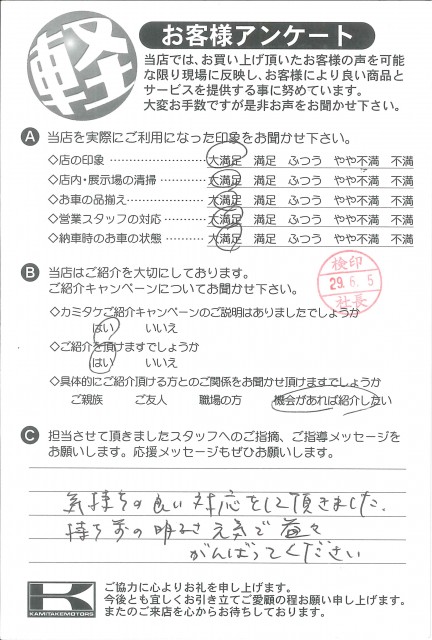 軽
お客様アンケート
当店では、お買い上げ頂いたお客様の声を可能
な限り現場に反映し、お客様により良い商品と
サービスを提供する事に努めています。
大変お手数ですが是非お声をお聞かせ下さい。
A 当店を実際にご利用になった印象をお聞かせ下さい。
◇店の印象 ………………… 大満足 満足 ふつう やや不満 不満
◇店内・展示場の清掃………… 大満足 満足 ふつう やや不満 不満
◇お車の品揃え……………… 大満足 満足 ふつう やや不満 不満
◇営業スタッフの対応 ……… 大満足 満足 ふつう やや不満 不満
◇納車時のお車の状態 ……… 大満足 満足 ふつう やや不満 不満
B 当店はご紹介を大切にしております。
ご紹介キャンペーンについてお聞かせ下さい。
検印
29.6.5
社長
◇カミタケご紹介キャンペーンのご説明はありましたでしょうか
はい いいえ
◇ご紹介を頂けますでしょうか
はい いいえ
◇具体的にご紹介頂ける方とのご関係をお聞かせ頂けますでしょうか
ご親族 ご友人 職場の方 機会があれば紹介したい
C 担当させて頂きましたスタッフへのご指摘、ご指導メッセージを
お願いします。応援メッセージもぜひお願いします。
気持ちの良い対応をして頂きました.
持ち前の明るさ 元気で 益々
がんばってください
K
KAMITAKEMOTORS
ご協力に心よりお礼を申し上げます。
今後とも宜しくお引き立てご愛顧の程お願い申し上げます。
またのご来店を心からお待ちしております。